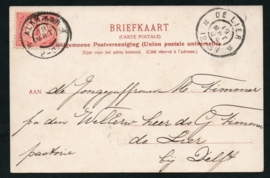 ALKMAAR
DE LIER
BRIEFKAART
(CARTE POSTALE)
Algemeene Postvereeniging (Union postale universelle)
Zijde voor het adres bestemd. (Côté réservé à l'adresse.)
AAN de Jongejuffrouw M Timmer
p/a den WelEerw heer ds Timmer
de Lier
pastorie bij Delft